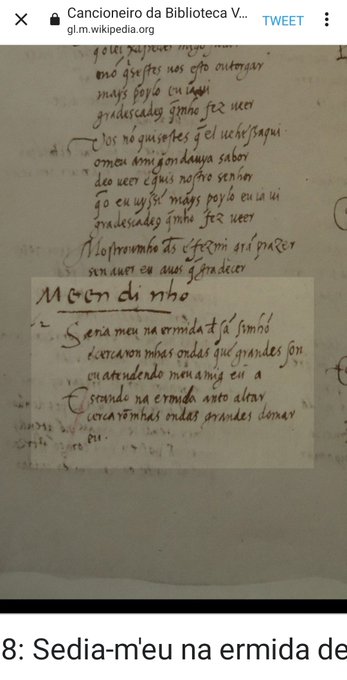 Cancioneiro da Biblioteca V...
gl.m.wikipedia.org
TWEET
nō q̄sestes uos esto outorgar
mays poylo eu ia ui
gradescadeq̄ mho fez ueer
Vos nō quisestes q̄ el uehessaqui
o meu amigondauya sabor
deo ueer e quis nostro senhor
q̄o eu uysse mays poylo eu ia ui
gradescadeq̄ mho fez ueer
Mostroumho d̄s e fezmi grā prazer
sen auer eu auos q̄ gradecer
Meendinho
Seria meu na ermida d̄ sā simhō
e cercaron mhas ondas que grandes son
eu atendendo meu amig eu a
Estando na ermida anto altar
cercarōmhas ondas grandes do mar
eu.
8: Sedia-m'eu na ermida de